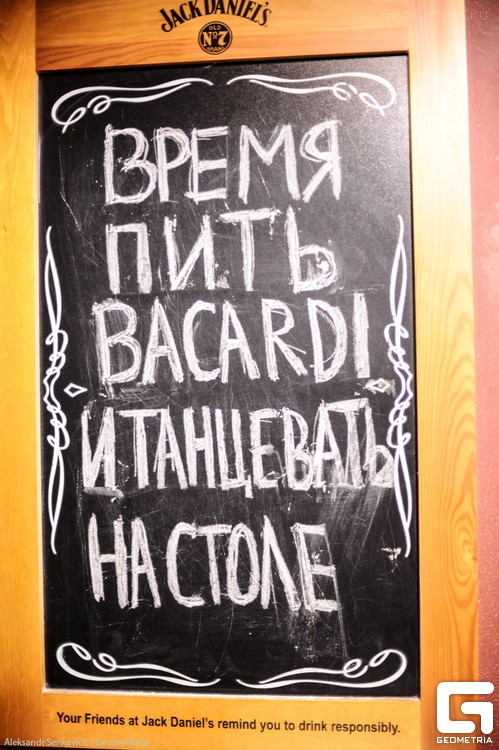 JACK DANIEL'S
OLD
Nº7
BRAND
ВРЕМЯ
ПИТЬ
BACARDI
И ТАНЦЕВАТЬ
НА СТОЛЕ
Your Friends at Jack Daniel's remind you to drink responsibly.
Aleksandr Senkevich / Geometria.ru
GEOMETRIA